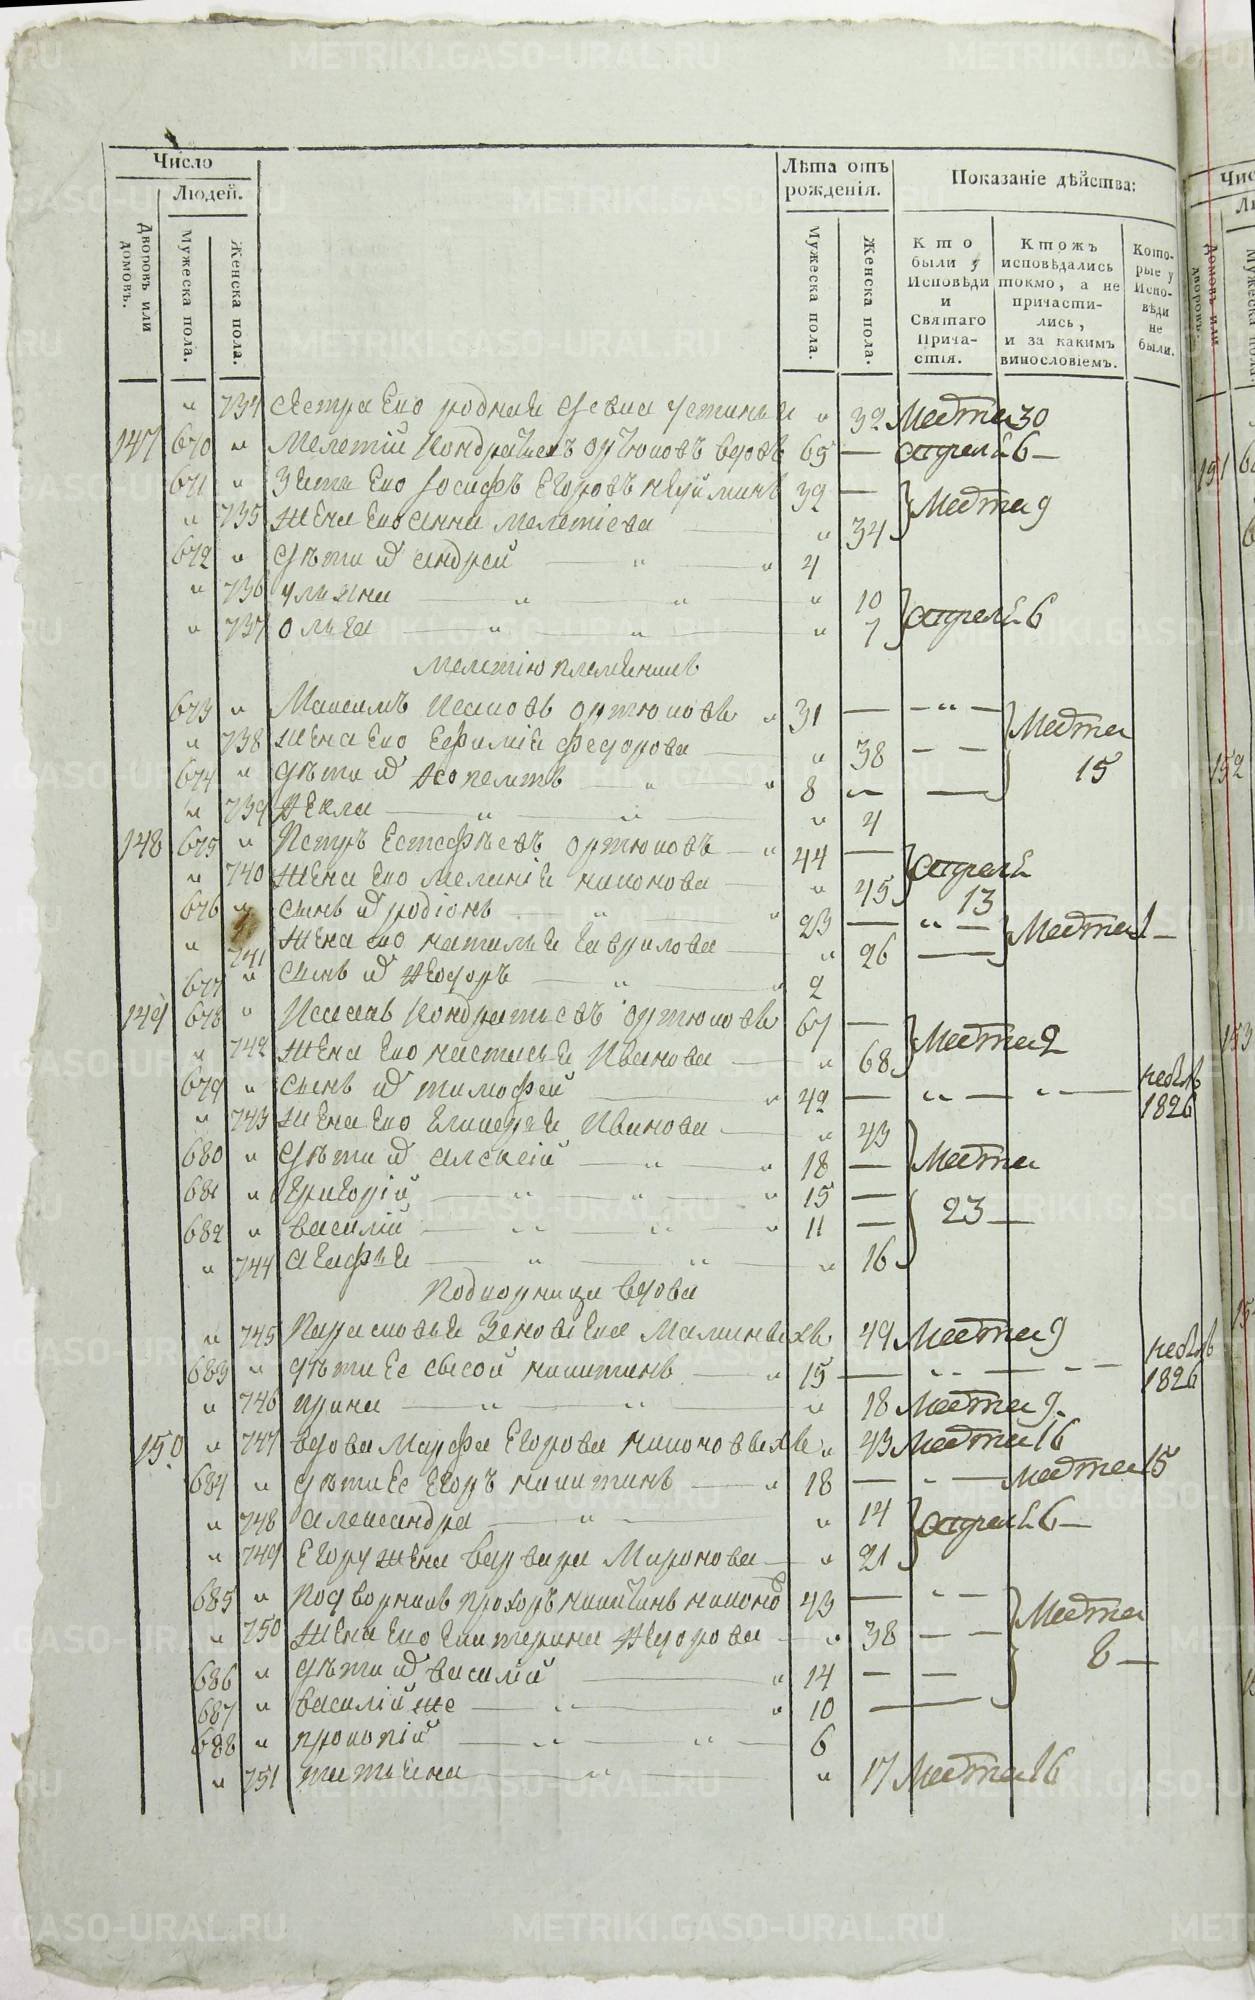 Число
Людей.
Дворовъ или домовъ.
Мужеска пола.
Женска пола.
Лѣта отъ рожденія.
Мужеска пола.
Женска пола.
Показаніе дѣйства:
Кто были у Исповѣди и Святаго Причастія.
Ктожъ исповѣдались токмо, а не причастились, и за какимъ винословіемъ.
Которые у Исповѣди не были.
" 734 сестра Его родная " 32 Марта 30
147 670 " Мелетій Кондратьевъ ортюковъ вдовъ 65 — апреля 6 —
671 " Зять Его Іосифъ Егоровъ 39 — Марта 9
" 735 жена Его анна мелетіева " 34
672 " дѣти их андрей " " 4
" 736 ульяна " " " 10 апреля 6
" 737 ольга " " " 7
мелетію племянникъ
673 " Максимъ Исаковъ ортюковъ " 31 — — " — Марта 15
" 738 жена Его Ефимія федорова " 38 — —
674 " дѣти их " " 8
" 739 Текла " " " 4
148 675 " Петръ Естефѣевъ ортюковъ " 44 — апреля 13
" 740 жена Его меланія никонова " 45
676 " сынъ их родіонъ " " 23 — " — Марта 1 —
" 741 жена его наталья гаврилова " 26 —
677 " сынъ их Ѳеодоръ " " 2
149 678 " Исаакъ Кондратьевъ ортюковъ 67 — Марта 2
" 742 жена Его настасья Иванова " 68
679 " сынъ их тимофей " 42 — " — " — небылъ 1826
" 743 жена Его Иванова " 43 Марта 23 —
680 " дѣти их алексій " " 18 —
681 " григорій " " " 15 —
682 " василій " " " 11 —
" 744 агафья " " " 16
Подворница вдова
" 745 Парасковья Зеновіева 49 Марта 9
683 " дѣти Ее сысой никитинъ " 15 — " — — — небылъ 1826
" 746 ирина " " " 18 Марта 9
150 " 747 вдова Марфа Егорова никоновыхъ " 43 Марта 16
684 " дѣти Ее Егоръ никитинъ " 18 — " — Марта 15
" 748 александра " " 14 апреля 6 —
" 749 Егору жена варвара Миронова " 21
685 " подворникъ прохоръ никитинъ никоно 43 — " — Марта 8 —
" 750 жена Его Екатерина Ѳедорова " 38 — —
686 " дѣти их василій " 14 — —
687 " василій же " " 10
688 " прокопій " " 6
" 751 татьяна " " 17 Марта 16
METRIKI.GASO-URAL.RU